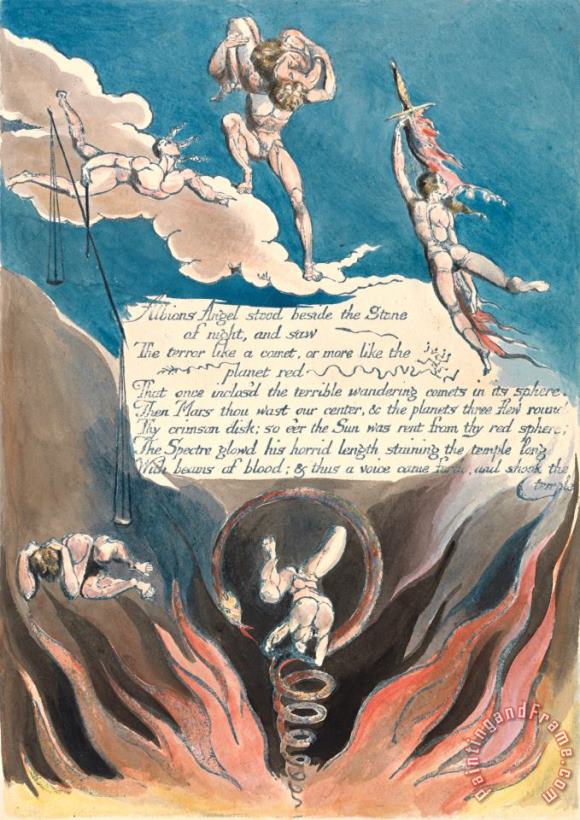 Albions Angel stood beside the Stone
of night, and saw
The terror like a comet, or more like the
planet red
That once inclos'd the terrible wandering comets in its sphere.
Then Mars thou wast our center, & the planets three flew round
Thy crimson disk; so e'er the Sun was rent from thy red sphere;
The Spectre glowd his horrid length staining the temple long
With beams of blood; & thus a voice came forth, and shook the
temple
PaintingandFrame.com